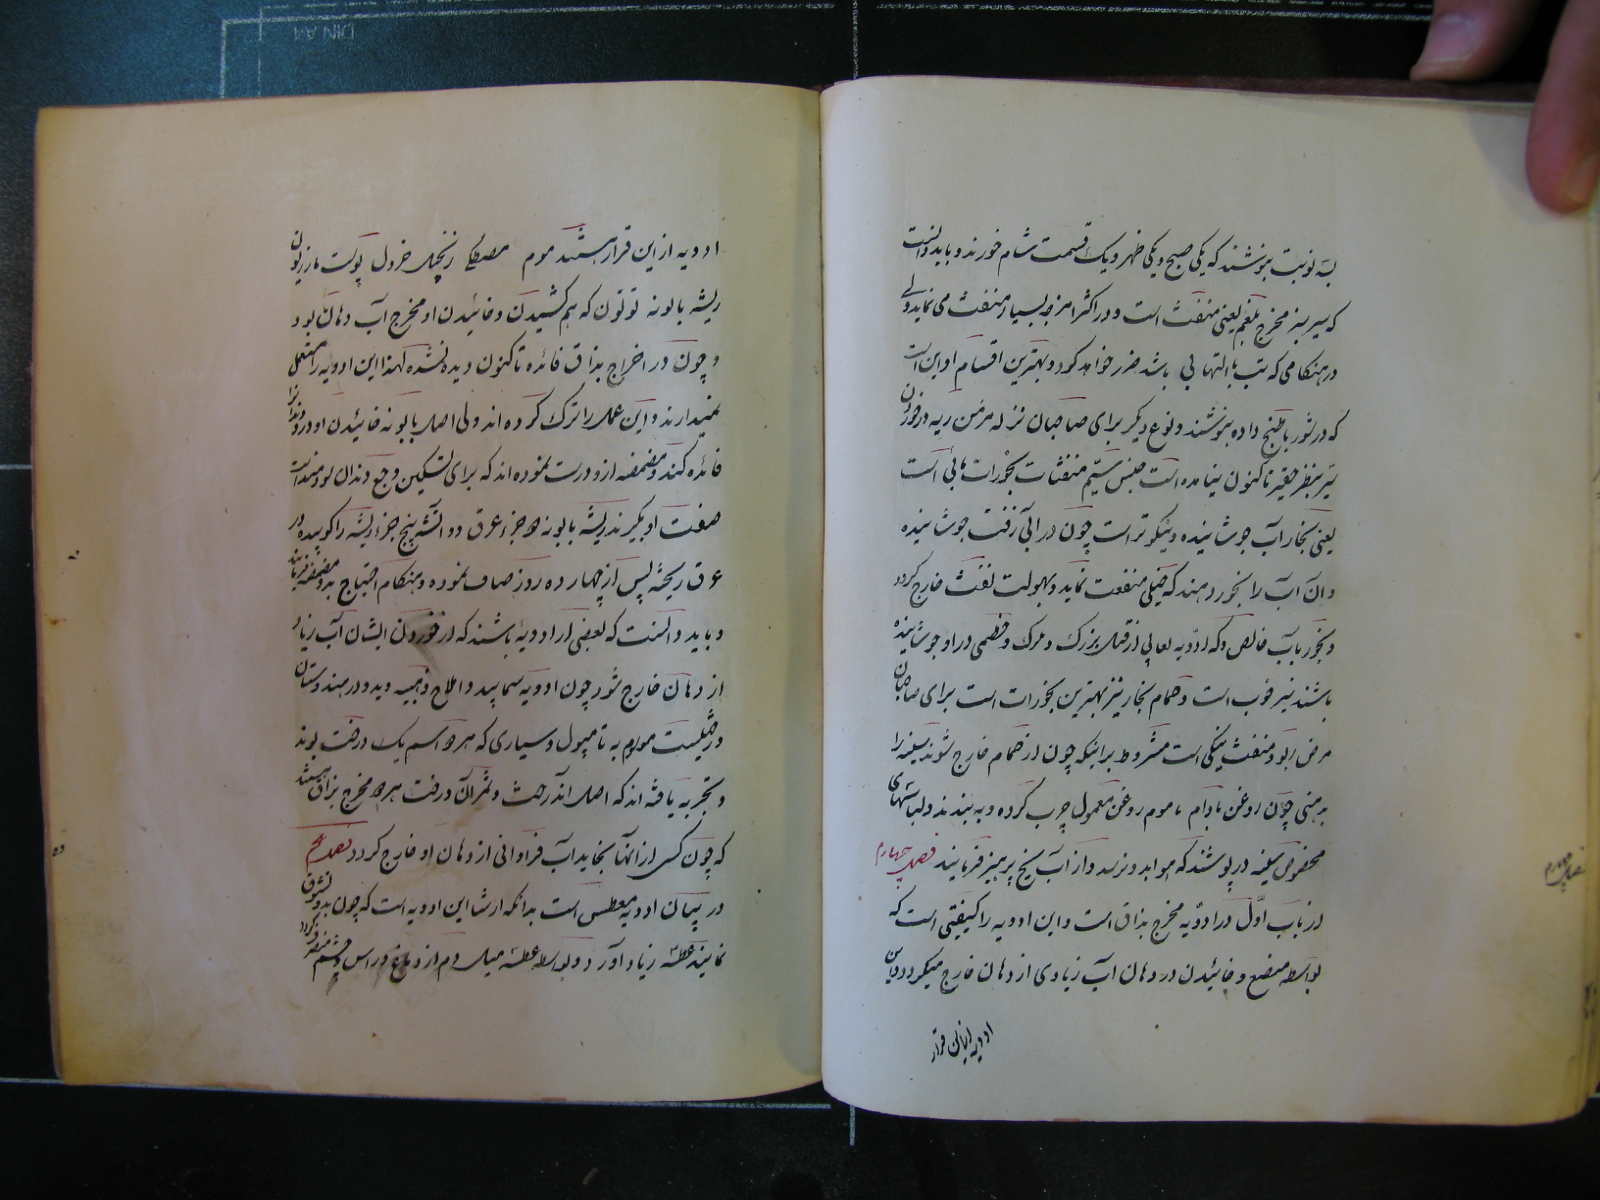 بسه نوبت بنوشند که یکی صبح و یکی ظهر و یک قسمت شام خورند و باید دانست
که سیر سبز مخرج بلغم یعنی منفث است و در اکثر امزجه بسیار منفعت می نماید ولی
در هنگامی که تب با التهابی باشد ضرر خواهد کرد و بهترین اقسام او این است
که در شور با طبخ داده بنوشند و نوع دیگر برای صاحبان نزله مزمن ریه در خوردن
سیر بنظر حقیر تا کنون نیامده است جنس سیم منفثات بخورات مائی است
یعنی بخار آب جوشانیده و نیکوتر است چون در آبی زفت جوشانیده
و آن آب را بخور دهند که خیلی منفعت نماید و بسهولت نفث خارج گردد
و بخور باب خالص و که ادویه لعابی از قبیل بزرک و برک و خطمی در او جوشانیده
باشند نیز خوب است و حمام بخار نیز بهترین بخورات است برای صاحبان
مرض ربو و منفث نیکی است مشروط بر اینکه چون از حمام خارج شوند سینه را
برهنی چون روغن بادام با موم روغن معمول چرب کرده و به بندند و لباسهای
مخصوص سینه در پوشند که هوا بد و نرسد و از آب یخ پرهیز فرمایند فصل چهارم
در باب اول در ادویه مخرج بذاق است و این ادویه را کیفیتی است که
بواسطه مضغ و خائیدن در دهان آب زیادی از دهان خارج میگردد و این
ادویه از این قرار
فصل چهارم
ادویه از این قرار هستند موم مصطکی زنجبیل خردل پوست مازریون
ریشه بابونه توتون که هم کشیدن و خائیدن او مخرج آب دهان بود
و چون در اخراج بذاق فائده تا کنون دیده نشده لهذا این ادویه را مستعمل
نمیدارند و این عمل را ترک کرده اند ولی اصل بابونه خائیدن او درد دندان را
فائده کند و مضمضه از او درست نموده اند که برای تسکین وجع دندان سودمند است
صفت او بگیرند ریشه بابونه جزء عرق دو آتشه پنج جزء ریشه را کوبیده در
عرق ریخته پس از چهارده روز صاف نموده و بهنگام احتیاج بدو مضمضه فرمایند
و باید دانست که بعضی از ادویه باشند که از خوردن ایشان آب زیاد
از دهان خارج شود چون ادویه سمابید و املاح ذهبیه وید و در هندوستان
درختیست موسوم به تامپول و سپاری که هر دو اسم یک درخت بوند
و تجربه یافته اند که اصل آندرخت و ثمر آن درخت هر دو مخرج بزاق هستند
که چون کسی از آنها بخاید آب فراوانی از دهان او خارج گردد فصل پنجم
در بیان ادویه معطس است بدانکه از شأن این ادویه است که چون بدو نشوق
نمایند عطسه زیاد آورد و بواسطه عطسه میل دم از دماغ و راس و چشم منصرف گردد